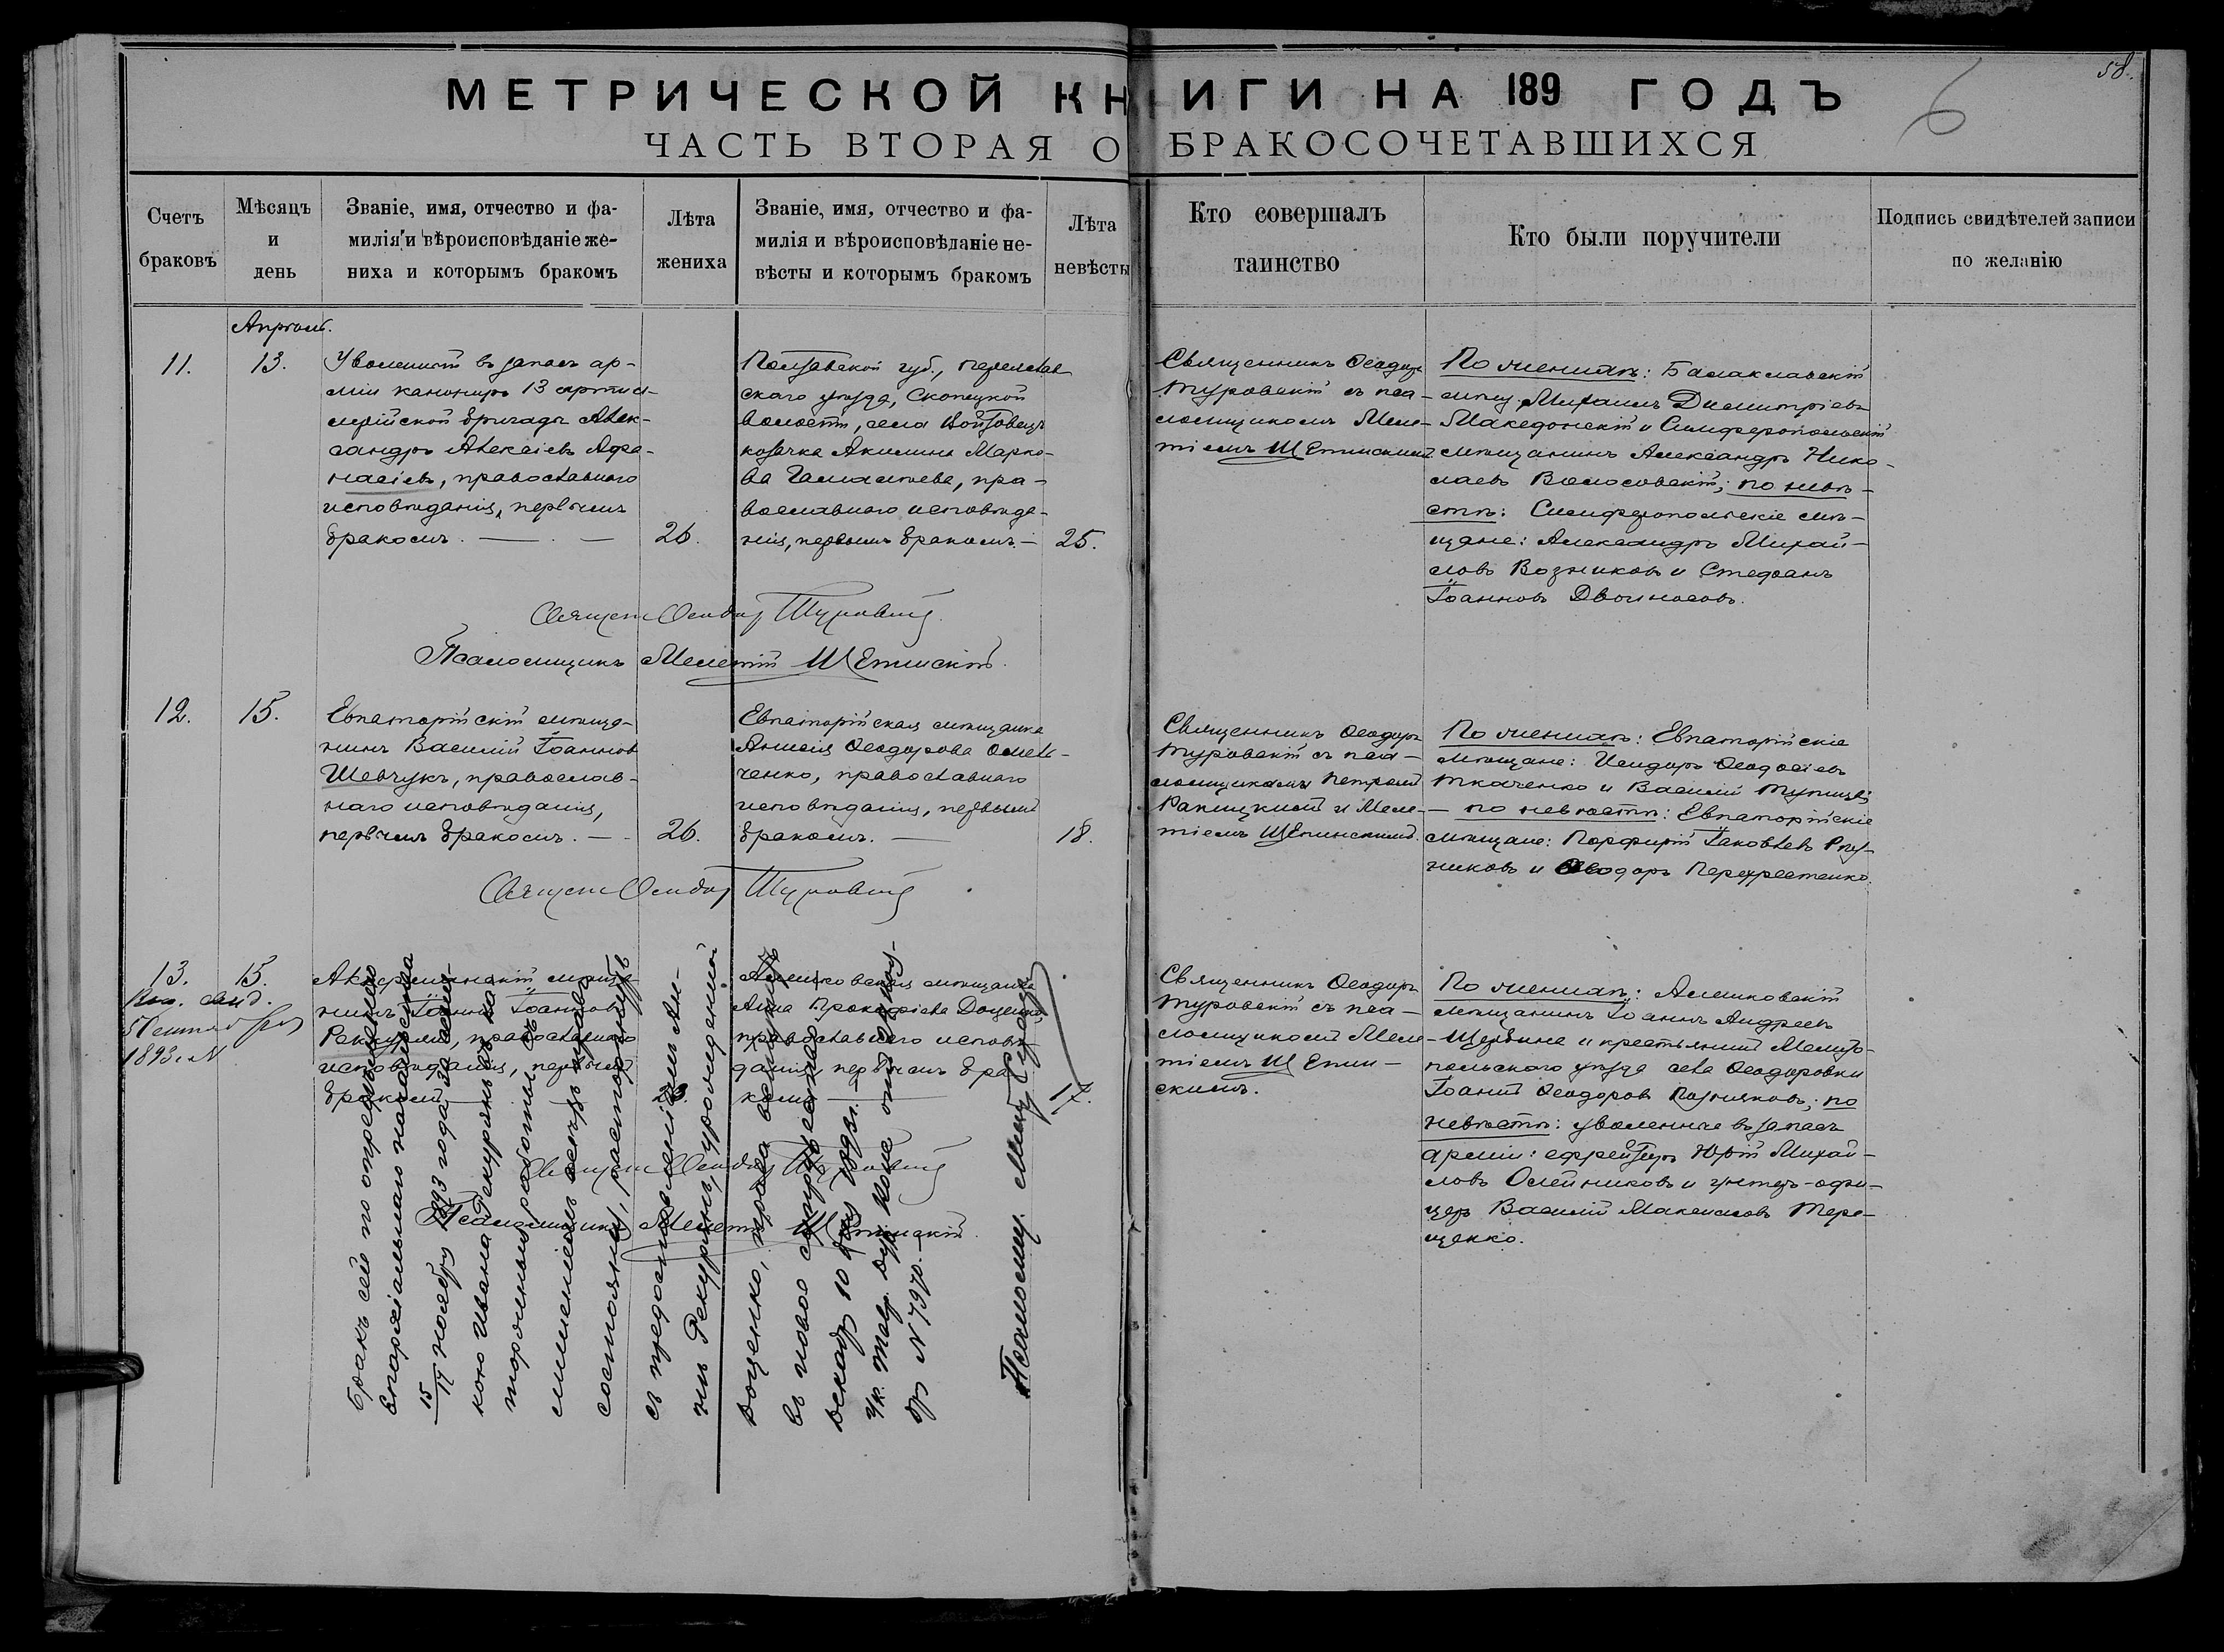 58.
6
МЕТРИЧЕСКОЙ КНИГИ НА 189 ГОДЪ
ЧАСТЬ ВТОРАЯ О БРАКОСОЧЕТАВШИХСЯ
Счетъ браковъ
Мѣсяцъ и день
Званіе, имя, отчество и фа-
милія и вѣроисповѣданіе же-
ниха и которымъ бракомъ
Лѣта жениха
Званіе, имя, отчество и фа-
милія и вѣроисповѣданіе не-
вѣсты и которымъ бракомъ
Лѣта невѣсты
Кто совершалъ
таинство
Кто были поручители
Подпись свидѣтелей записи
по желанію
11.
Апрель.
13.
Уволенный въ запасъ ар-
міи канониръ 13 артил-
лерійской бригады Алек-
сандръ Алексіевъ Афа-
насіевъ, православнаго
исповѣданія, первымъ
бракомъ.
26.
Полтавской губ., Переяслав
скаго уѣзда,
волости, села Войтовецъ
козачка Акилина Марко-
ва, пра-
вославнаго исповѣда-
нія, первымъ бракомъ.
25.
Священникъ Ѳеодоръ
Туровскій съ пса-
ломщикомъ Меле-
тіемъ
По женихѣ: Балаклавскій
мѣщ. Михаилъ Димитріевъ
Македонскій и Симферопольскій
мѣщанинъ Александръ Нико-
лаевъ Волосовскій; по невѣ-
стѣ: Симферопольскіе мѣ-
щане: Александръ Михай-
ловъ Возниковъ и Стефанъ
Іоанновъ Двойносовъ.
Священ Ѳеодоръ Туровскій
Псаломщикъ Мелетій
12.
15.
Евпаторійскій мѣща-
нинъ Василій Іоанновъ
Шевчукъ, православ-
наго исповѣданія,
первымъ бракомъ.
26.
Евпаторійская мѣщанка
Анисія Ѳеодорова Омель-
ченко, православнаго
исповѣданія, первымъ
бракомъ.
18.
Священникъ Ѳеодоръ
Туровскій съ пса-
ломщиками Петромъ
и Меле-
тіемъ
По женихѣ: Евпаторійскіе
мѣщане: Исидоръ Ѳеодосіевъ
Ткаченко и Василій
по невѣстѣ: Евпаторійскіе
мѣщане: Порфирій Іаковлевъ
и Ѳеодоръ Перехрестенко.
Священ Ѳеодоръ Туровскій
13.
15.
1893 г. №
Аккерманскій мѣща-
нинъ Іоаннъ Іоанновъ
православнаго
исповѣданія, первымъ
бракомъ
Алешковская мѣщанка
Анна Прокофіева Доценко,
православнаго исповѣ-
данія, первымъ бра-
комъ
17.
Священникъ Ѳеодоръ
Туровскій съ пса-
ломщикомъ Меле-
тіемъ
По женихѣ: Алешковскій
мѣщанинъ Іоаннъ Андреевъ
Щербина и крестьянинъ Мелито-
польскаго уѣзда села Ѳеодоровки
Іоаннъ Ѳеодоровъ Позняковъ; по
невѣстѣ: уволенные въ запасъ
арміи: ефрейторъ Юрій Михай-
ловъ Олейниковъ и унтеръ-офи-
церъ Василій Максимовъ Тере-
щенко.
Священ Ѳеодоръ Туровскій
Псаломщикъ Мелетій
Бракъ сей по опредѣленію
Епархіальнаго начальства
15/17 ноября 1893 года, за
Ивана Рекуринъ въ ка-
торжныя работы съ
лишеніемъ всѣхъ правъ
состоянія, расторгнутъ
съ предоставленіемъ Ан-
нѣ Рекуринъ, урожденной
Доценко, права вступить
въ новое супружество
Декабря 10 дня 1893 г.
Ук. Тавр. Дух. Конс. отъ
№ 7970.
Псаломщ.